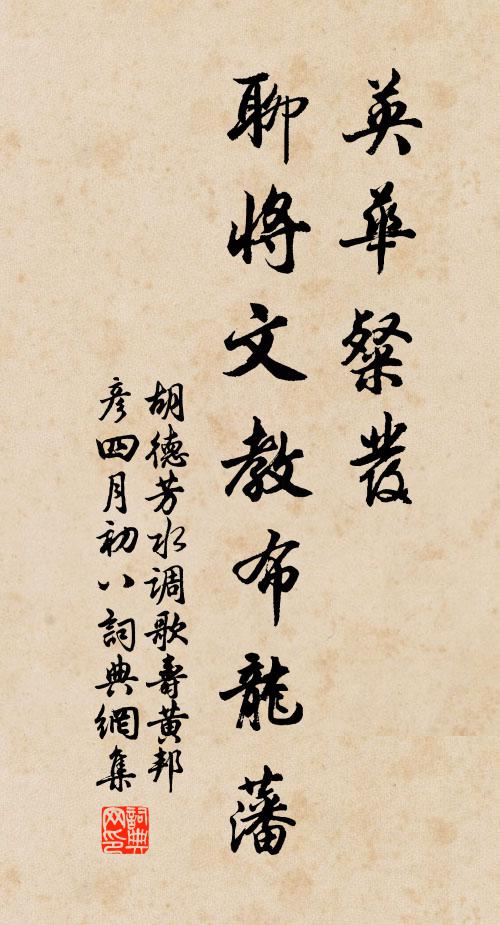 英華粲發
聊將文教布龍藩
胡德芳水调歌壽黃邦
彦四月初八詞典網集
詞典
网印